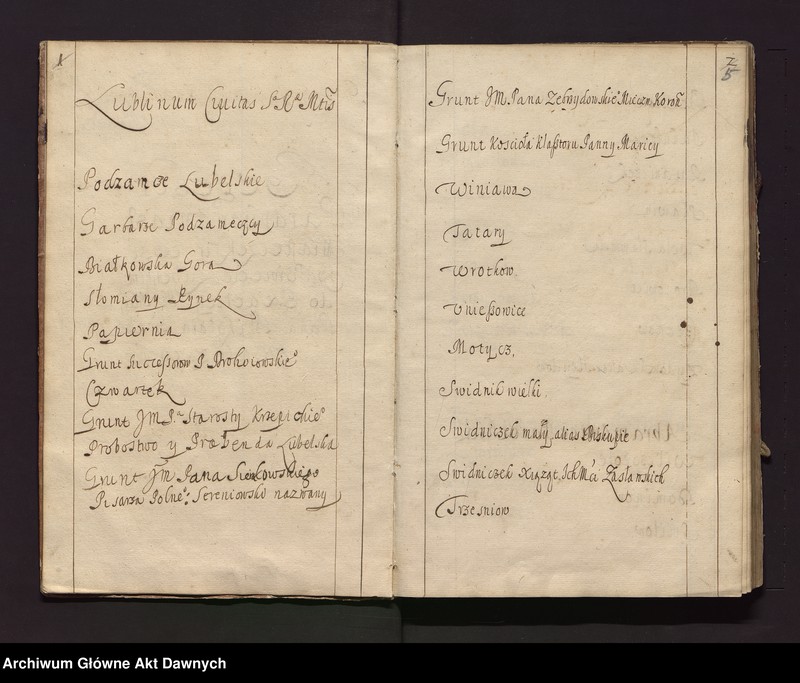 1
Lublinum Civitas S. R. Mtis
Podzamcze Lubelskie
Garbarze Podzamęczcy
Białkowska Gora
Słomiany Rynek
Papiernia
Grunt Successorow P.
Czwartek
Grunt JM P. Starosty Krzepickieo
Probostwo y Præbenda Lubelska
Grunt Jm Pana Sienkowskiego
Pisarza Polneo: Sereniowsko nazwany
2
5
Grunt JM. Pana Zebrzydowskieo Mieczn. Koron
Grunt Kościoła Klasztoru Panny Mariey
Winiawa
Tatary
Wrotkow
Vniessowice
Motycz.
Swidnik wielki.
Swidniczek mały alias Biskupie
Swidniczek Xiążąt Ich Mci Zasławskich
Trzesniow
Archiwum Główne Akt Dawnych